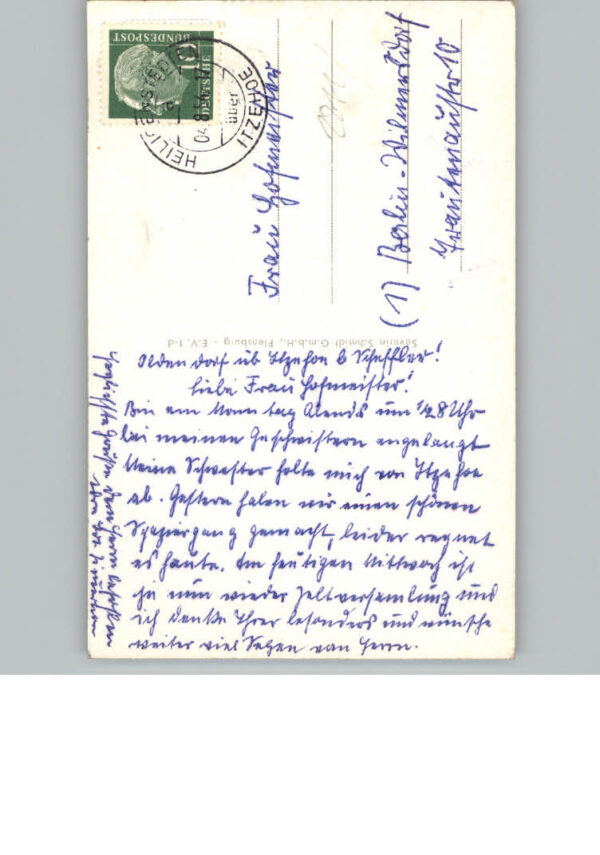 DEUTSCHE
BUNDESPOST
10
HEILIGENSTEDTEN
über
ITZEHOE
Frau Hofmeister
(1) Berlin-Wilmersdorf
Trautenaustr 10
Severin Schmidt G.m.b.H., Flensburg - E.V. 1-d
Oldendorf üb Itzehoe b Scheffler!
Liebe Frau Hofmeister!
Bin am Montag Abends um 1/2 8 Uhr
bei meinen Geschwistern angelangt
Meine Schwester holte mich von Itzehoe
ab. Gestern haben wir einen schönen
Spaziergang gemacht, leider regnet
es heute. Am heutigen Mittwoch ist
ja nun wieder Zeltversamlung und
ich denke Ihrer besonders und wünsche
weiter viel Segen vom Herrn.
Herzlichste Grüße dem Herrn befohlen